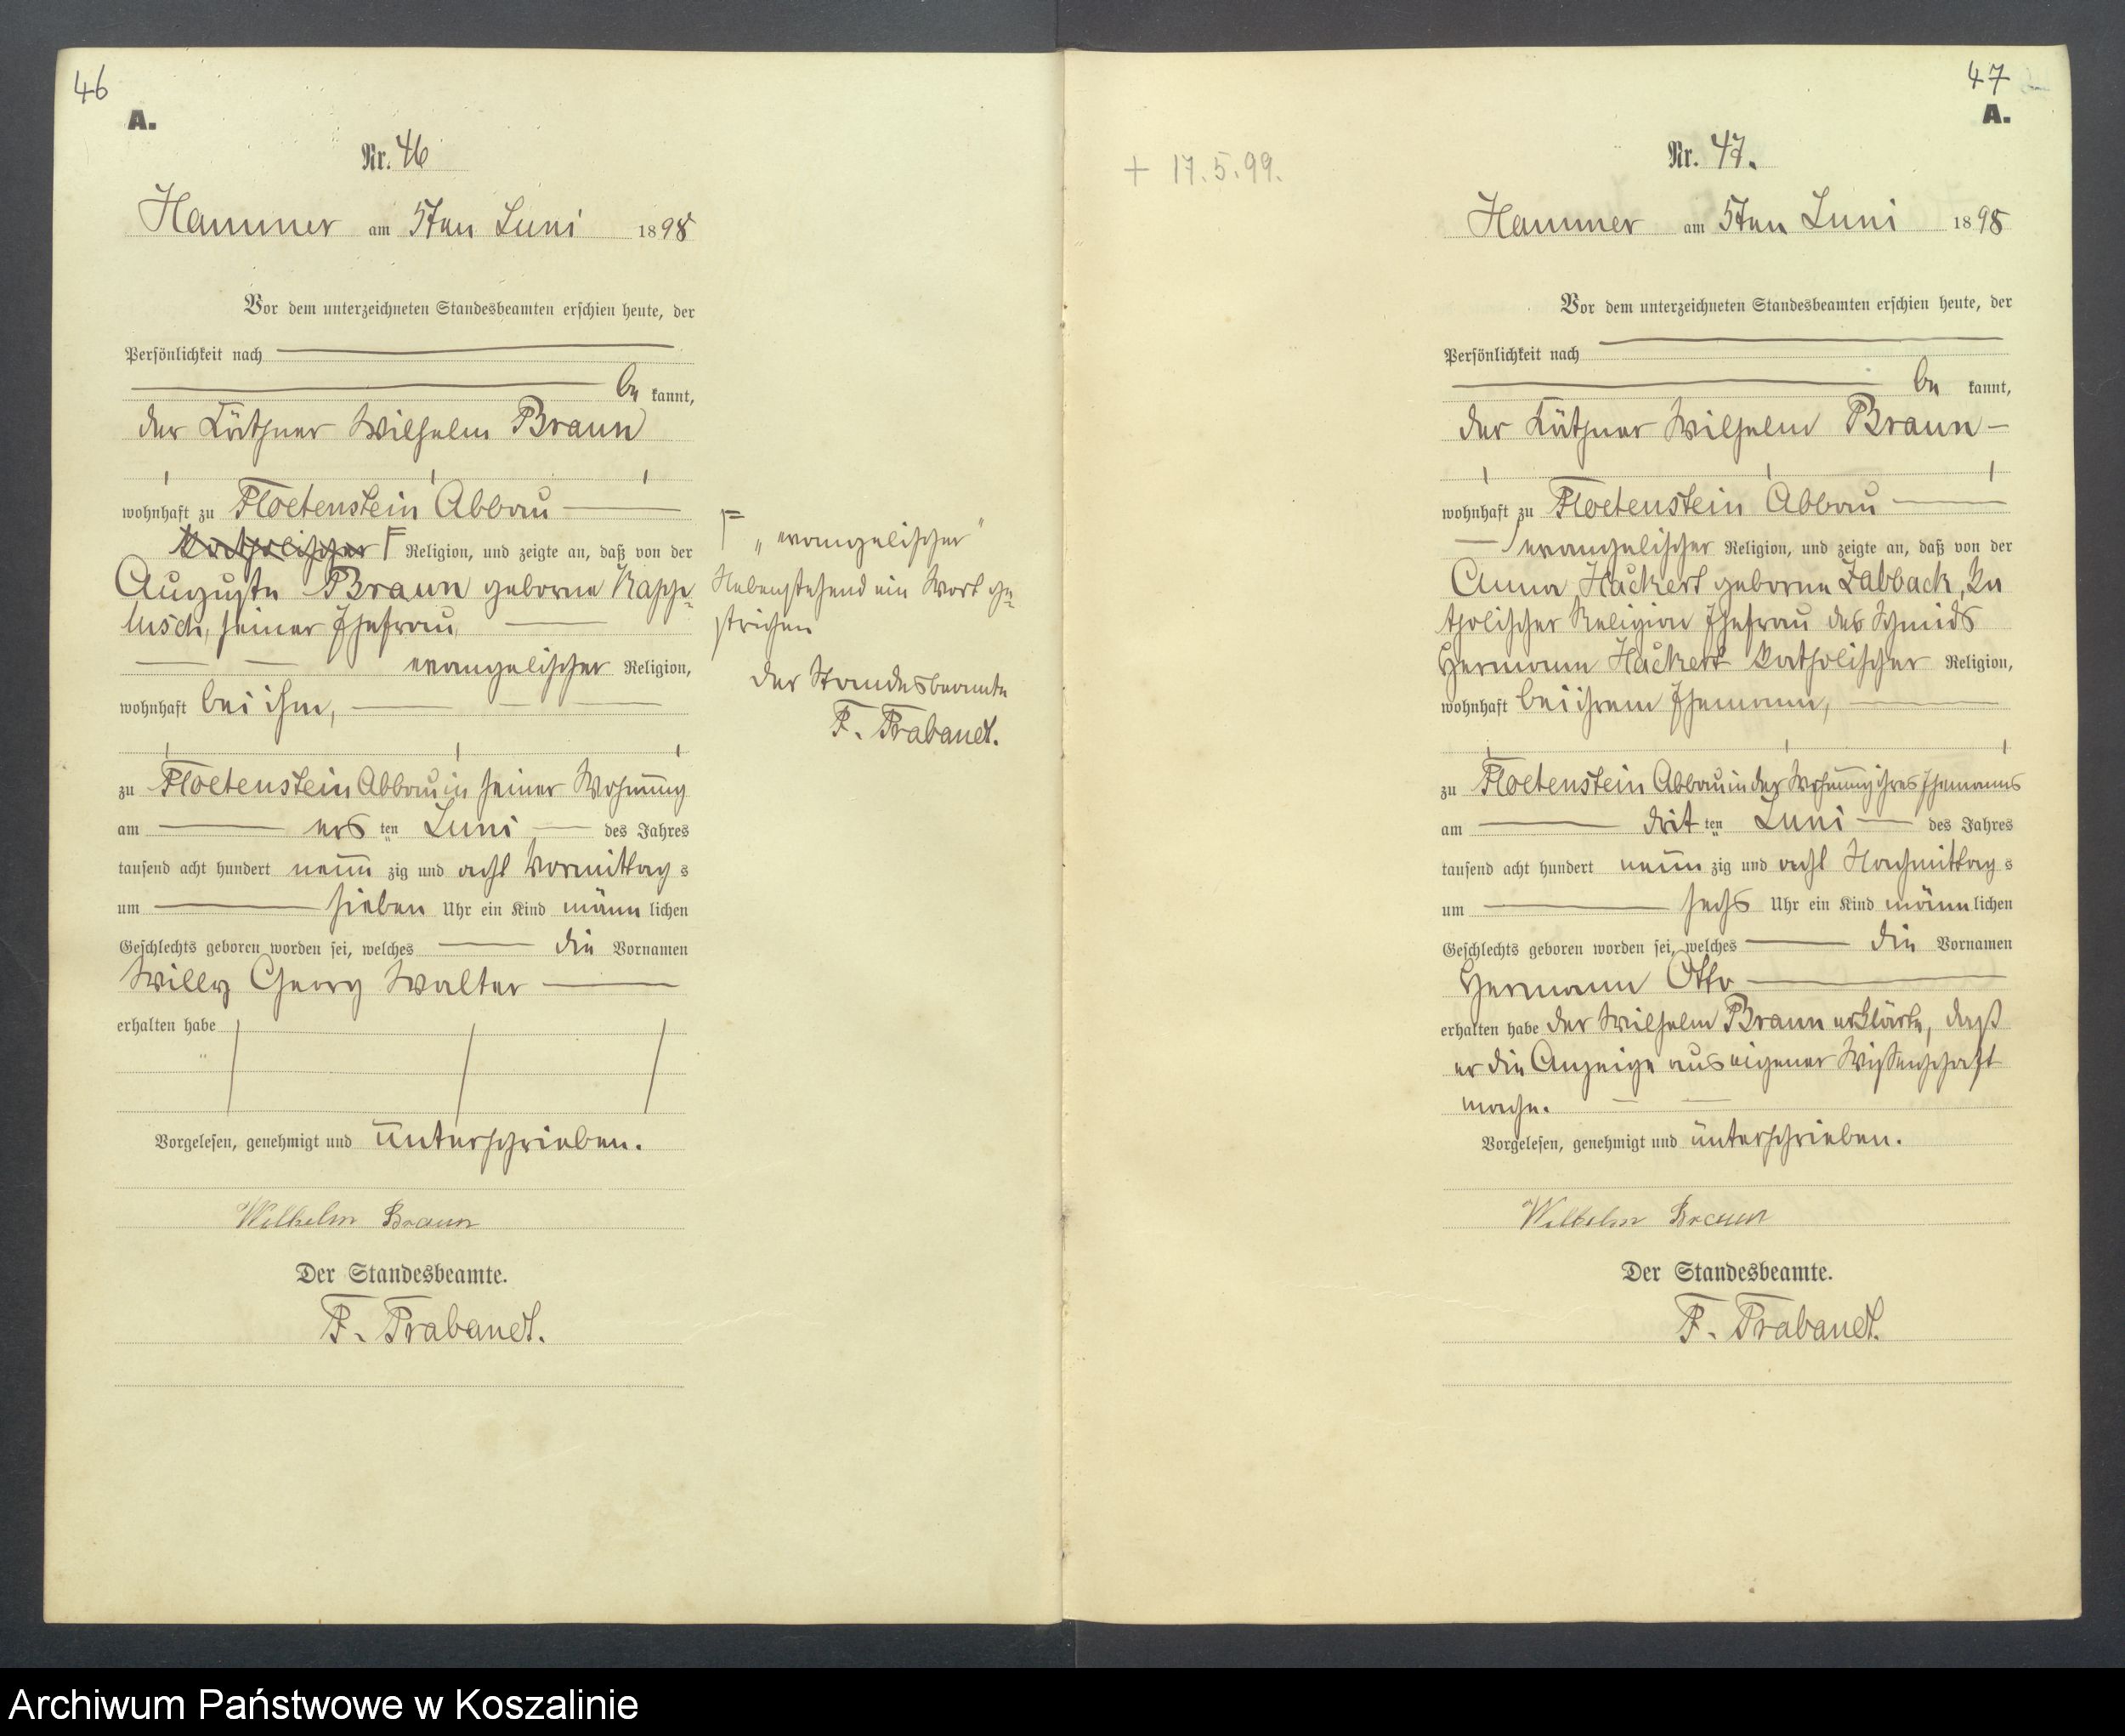 46
A.
Nr. 46
Hammer am 5ten Juni 1898
Vor dem unterzeichneten Standesbeamten erschien heute, der
Persönlichkeit nach
be kannt,
der Käthner Wilhelm Braun
wohnhaft zu Floetenstein Abbau
katholischer F Religion, und zeigte an, daß von der
Auguste Braun geborne Kappe-
lusch, seiner Ehefrau
evangelischer Religion,
wohnhaft bei ihm,
zu Floetenstein Abbau in seiner Wohnung
am ers ten Juni des Jahres
tausend acht hundert neun zig und acht Vormittag s
um sieben Uhr ein Kind männ lichen
Geschlechts geboren worden sei, welches die Vornamen
Willy Georg Walter
erhalten habe
Vorgelesen, genehmigt und unterschrieben.
Wilhelm Braun
Der Standesbeamte.
F. Prabandt.
F „evangelischer"
Nebenstehend ein Wort ge-
strichen
Der Standesbeamte
F. Prabandt.
+ 17.5.99.
47
A.
Nr. 47.
Hammer am 5ten Juni 1898
Vor dem unterzeichneten Standesbeamten erschien heute, der
Persönlichkeit nach
be kannt,
der Käthner Wilhelm Braun
wohnhaft zu Floetenstein Abbau
evangelischer Religion, und zeigte an, daß von der
Anna Hackert geborne Zabback, ka
tholischer Religion Ehefrau des Schmids
Hermann Hackert katholischer Religion,
wohnhaft bei ihrem Ehemann,
zu Floetenstein Abbau in der Wohnung ihres Ehemanns
am drit ten Juni des Jahres
tausend acht hundert neun zig und acht Nachmittag s
um sechs Uhr ein Kind männ lichen
Geschlechts geboren worden sei, welches die Vornamen
Hermann Otto
erhalten habe der Wilhelm Braun erklärte, daß
er die Anzeige aus eigener Wissenschaft
mache.
Vorgelesen, genehmigt und unterschrieben.
Wilhelm Braun
Der Standesbeamte.
F. Prabandt.
Archiwum Państwowe w Koszalinie